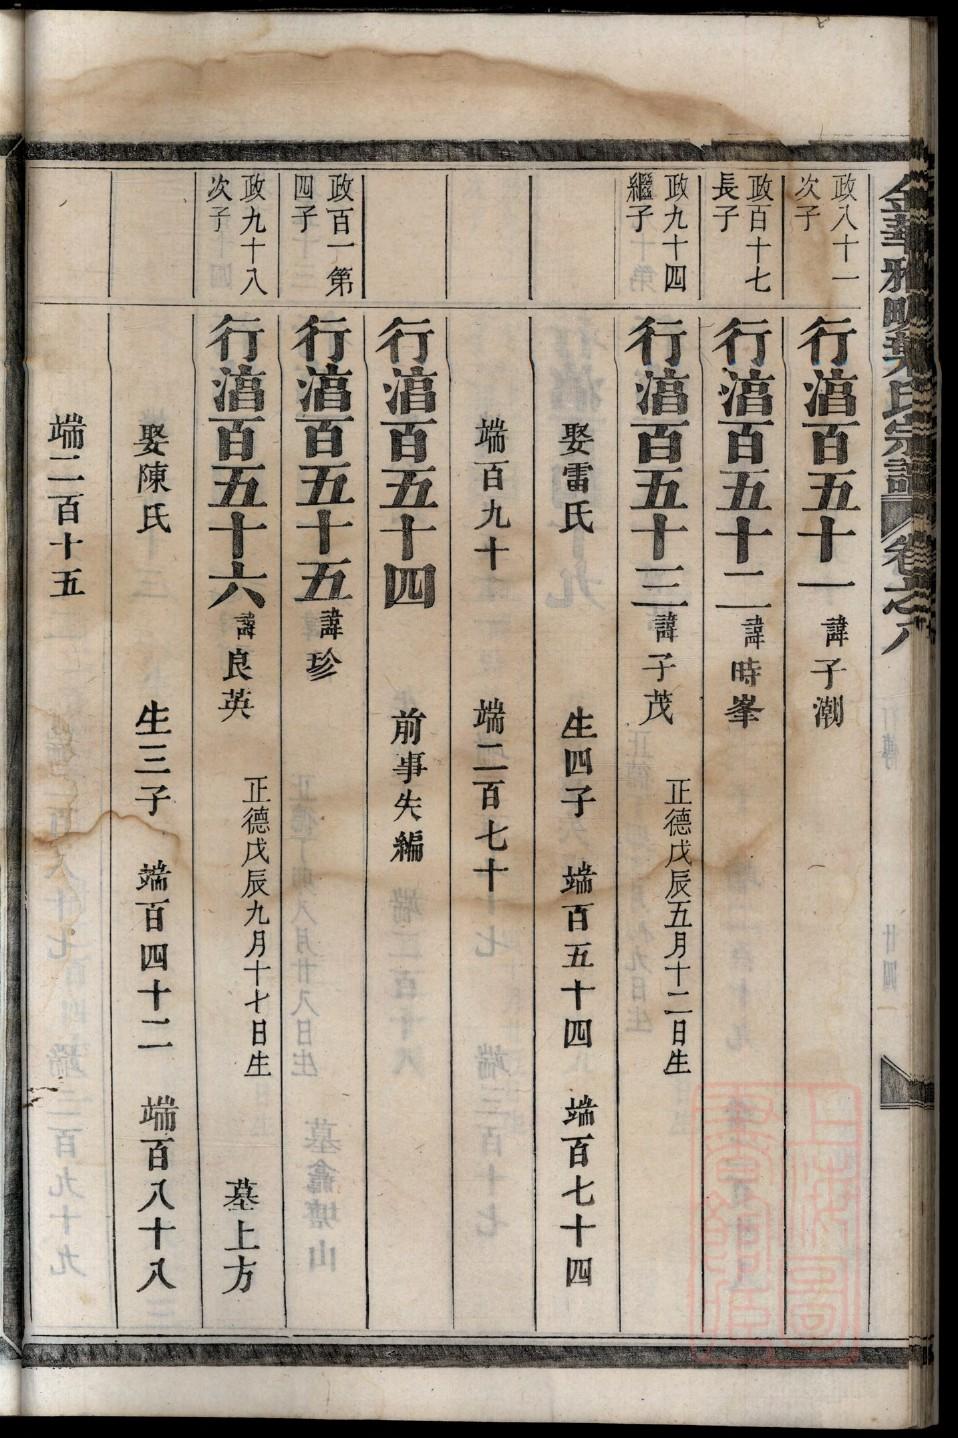 金華雅畈葉氏宗譜 卷之八
政八十一次子
行湻百五十一 諱子潮
政百十七長子
行湻百五十二 諱時峯
政九十四繼子
行湻百五十三 諱子茂 正德戊辰五月十二日生
娶雷氏 生四子 端百五十四 端百七十四
端百九十 端二百七十
行湻百五十四 前事失編
政百一第四子
行湻百五十五 諱珍
政九十八次子
行湻百五十六 諱良英 正德戊辰九月十七日生 墓上方
娶陳氏 生三子 端百四十二 端百八十八
端二百十五